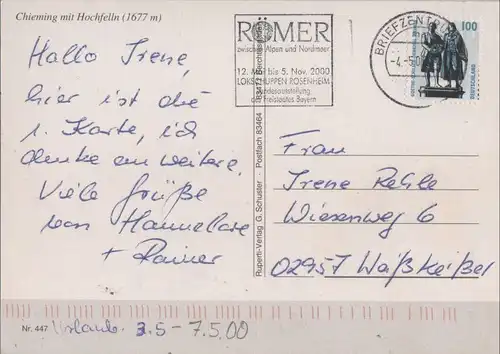 Chieming mit Hochfelln (1677 m)
Hallo Irene,
hier ist die
1. Karte, ich
denke an weitere.
Viele Grüße
von Hannelore
+ Rainer
RÖMER
zwischen Alpen und Nordmeer
12. Mai bis 5. Nov. 2000
LOKSCHUPPEN ROSENHEIM
Landesausstellung
des Freistaates Bayern
BRIEFZENTRUM
-4.-5.00
100
DEUTSCHLAND
Ruperti-Verlag G. Schuster · Postfach 83464 · 83417 Berchtesgaden
Frau
Irene Kehle
Wiesenweg 6
02957 Weißkeißel
Nr. 447
Urlaub. 3.5 - 7.5.00